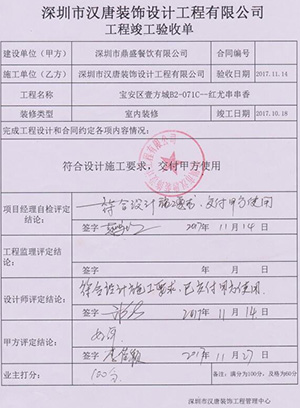 深圳市汉唐装饰设计工程有限公司
工程竣工验收单
建设单位(甲方) 深圳市鼎盛餐饮有限公司 合同编号
施工单位(乙方) 深圳市汉唐装饰设计工程有限公司 验收日期 2017.11.14
工程名称 宝安区壹方城B2-071C--红尤串串香
装修类型 室内装修 竣工日期 2017.10.18
完成工程设计和合同约定各项内容情况:
符合设计施工要求,交付甲方使用
项目经理自检评定结论:
符合设计施工要求,交付甲方使用
签字 2017年11月14日
工程监理评定结论:
签字 年 月 日
设计师评定结论:
符合设计施工要求,已交付甲方使用.
签字 2017年11月14日
甲方评定结论:
签字 2017年11月27日
业主打分: 100分 备注:满分为100分,及格为60分
深圳市汉唐装饰工程管理中心